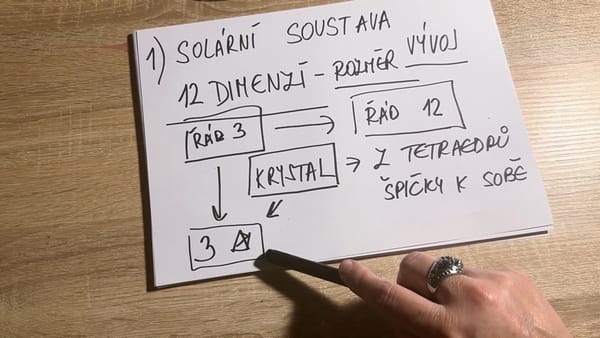 1) SOLÁRNÍ SOUSTAVA
12 DIMENZÍ - ROZMĚR VÝVOJ
ŘÁD 3 → ŘÁD 12
KRYSTAL → Z TETRAEDRŮ
ŠPIČKY K SOBĚ
3